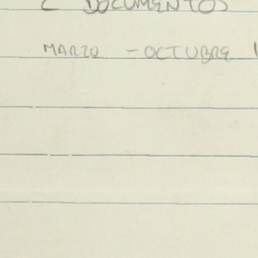 2 DOCUMENTOS
MARZO - OCTUBRE